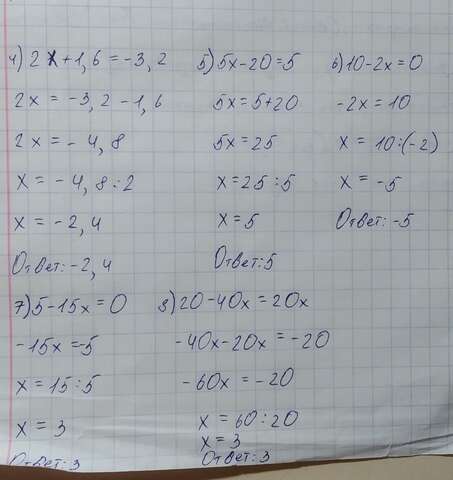 4) 2x+1,6=-3,2
2x=-3,2-1,6
2x=-4,8
x=-4,8:2
x=-2,4
Ответ:-2,4
5) 5x-20=5
5x=5+20
5x=25
x=25:5
x=5
Ответ:5
6) 10-2x=0
-2x=10
x=10:(-2)
x=-5
Ответ:-5
7) 5-15x=0
-15x=-5
x=15:5
x=3
Ответ:3
8) 20-40x=20x
-40x-20x=-20
-60x=-20
x=60:20
x=3
Ответ:3